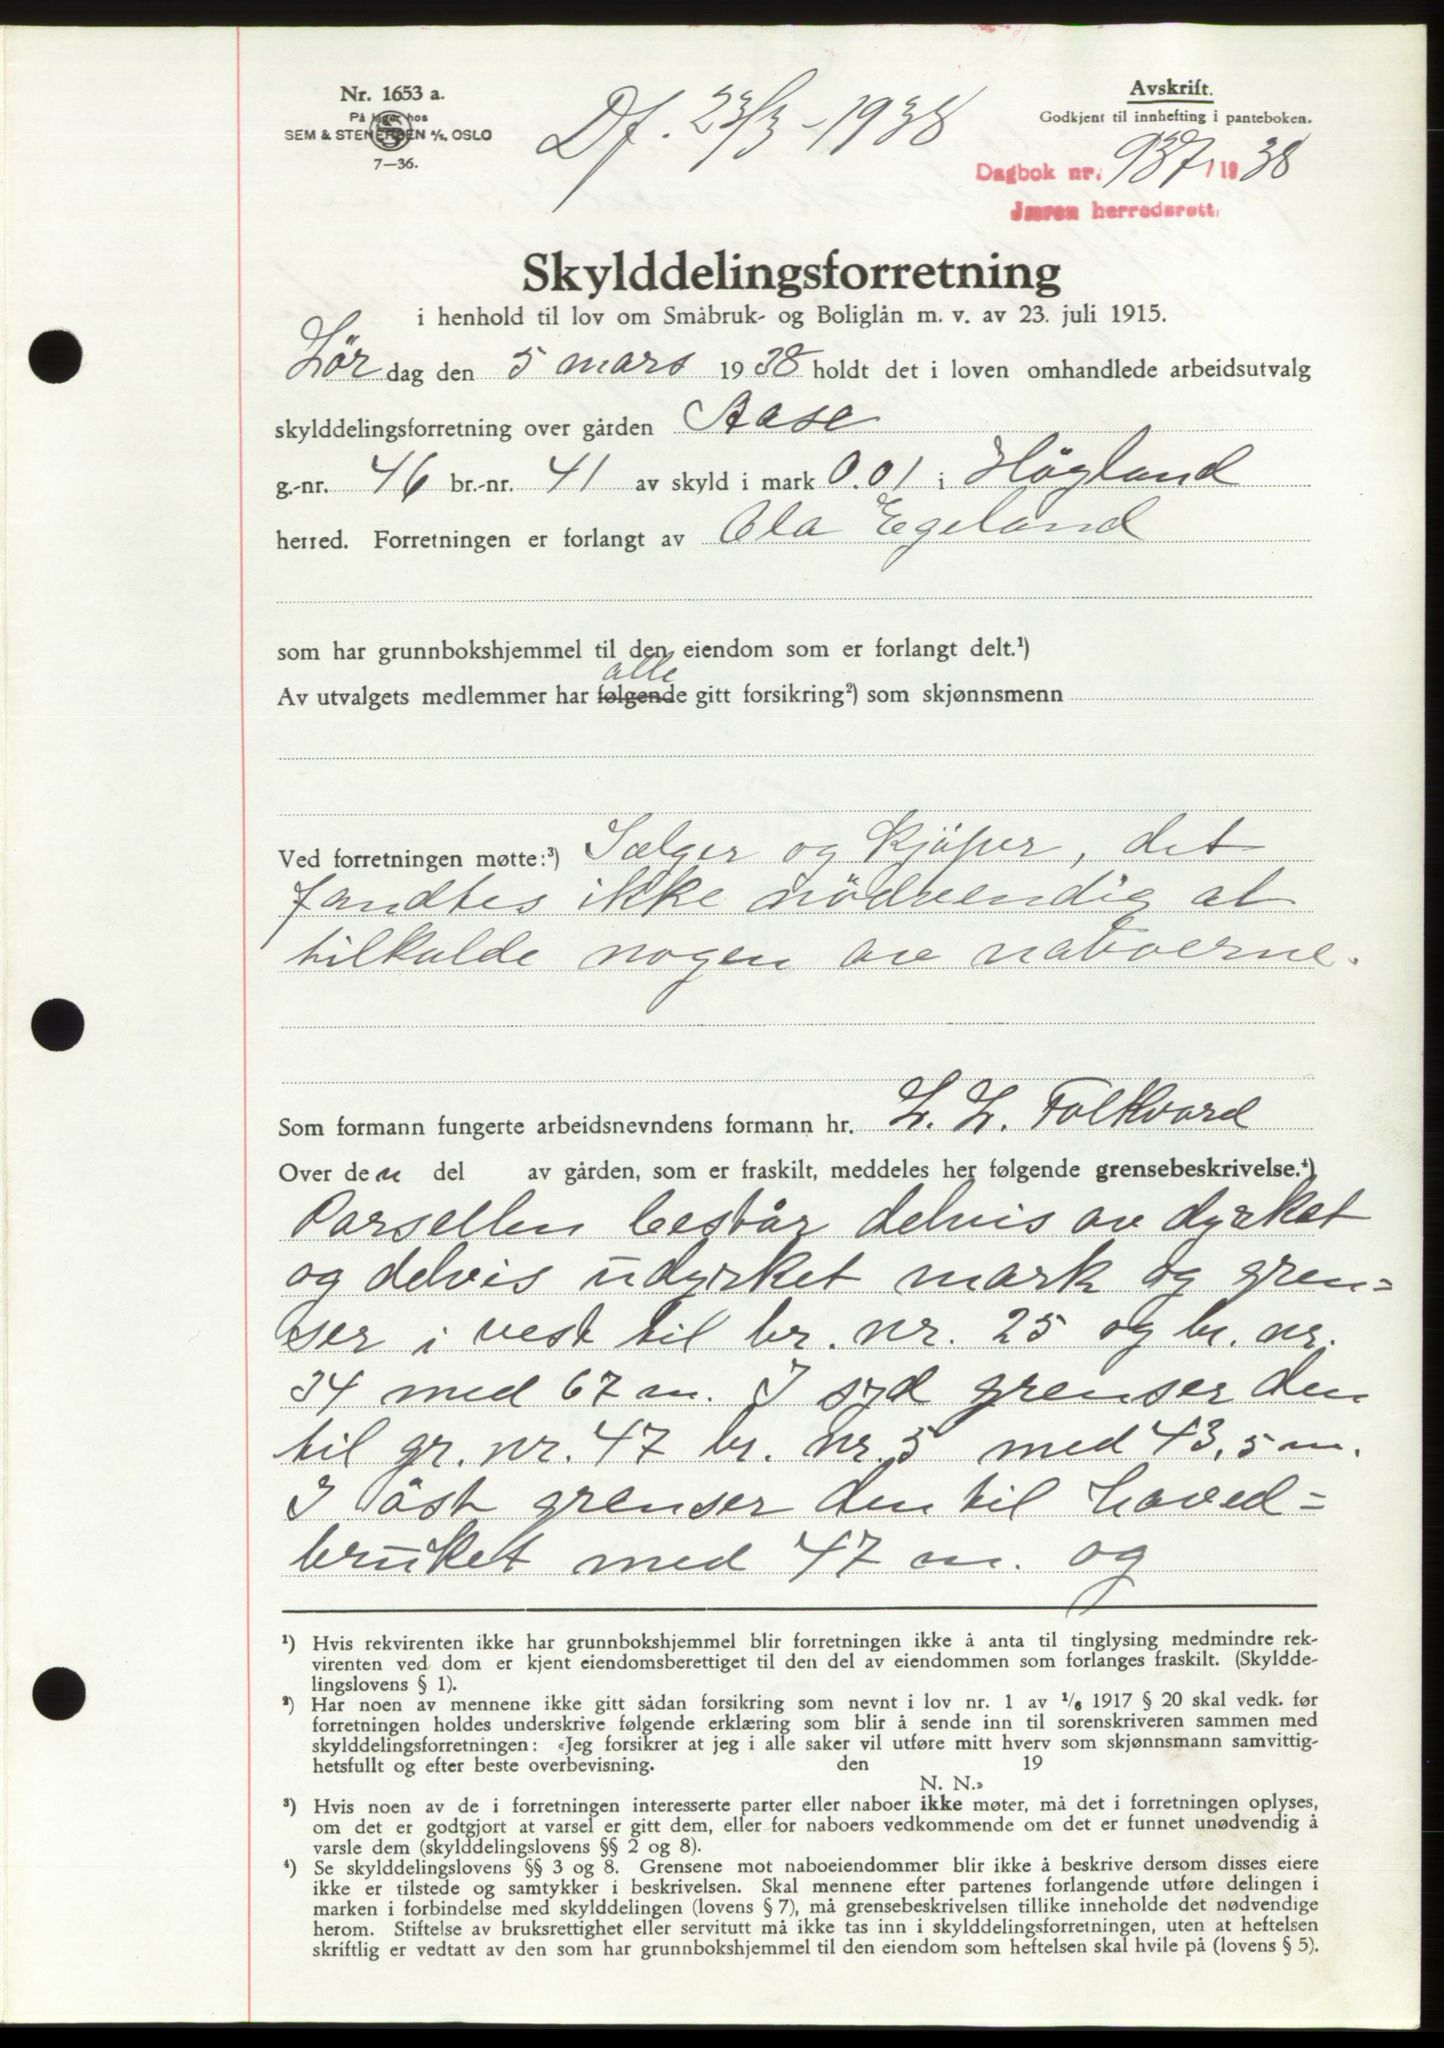 Nr. 1653 a.
På lager hos
SEM & STENERSEN A/S, OSLO
7—36.
Df. 23/3-1938
Avskrift.
Godkjent til innhefting i panteboken.
Dagbok nr. 937/1938
Jæren herredsrett.
Skylddelingsforretning
i henhold til lov om Småbruk- og Boliglån m. v. av 23. juli 1915.
Lör dag den 5 mars 1938 holdt det i loven omhandlede arbeidsutvalg
skylddelingsforretning over gården Aase
g.-nr. 46 br.-nr. 41 av skyld i mark 0.01 i Høgland
herred. Forretningen er forlangt av Ola Egeland
som har grunnbokshjemmel til den eiendom som er forlangt delt.¹)
alle
Av utvalgets medlemmer har følgende gitt forsikring²) som skjønnsmenn
Ved forretningen møtte:³) Sælger og Kjöper, det
fandtes ikke nödvendig at
tilkalde nogen av naboerne.
Som formann fungerte arbeidsnevndens formann hr. L. L. Folkvord
Over den del av gården, som er fraskilt, meddeles her følgende grensebeskrivelse.⁴)
Parsellen består delvis av dyrket
og delvis udyrket mark og gren=
ser i vest til br. nr. 25 og br. nr.
34 med 67 m. I syd grenser den
til gr. nr. 47 br. nr. 5 med 43,5 m.
I öst grenser den til Hoved=
bruket med 47 m. og
¹) Hvis rekvirenten ikke har grunnbokshjemmel blir forretningen ikke å anta til tinglysing medmindre rek-
virenten ved dom er kjent eiendomsberettiget til den del av eiendommen som forlanges fraskilt. (Skyldde-
lingslovens § 1).
²) Har noen av mennene ikke gitt sådan forsikring som nevnt i lov nr. 1 av 1/6 1917 § 20 skal vedk. før
forretningen holdes underskrive følgende erklæring som blir å sende inn til sorenskriveren sammen med
skylddelingsforretningen: «Jeg forsikrer at jeg i alle saker vil utføre mitt hverv som skjønnsmann samvittig-
hetsfullt og efter beste overbevisning. den 19
N. N.»
³) Hvis noen av de i forretningen interesserte parter eller naboer ikke møter, må det i forretningen oplyses,
om det er godtgjort at varsel er gitt dem, eller for naboers vedkommende om det er funnet unødvendig å
varsle dem (skylddelingslovens §§ 2 og 8).
⁴) Se skylddelingslovens §§ 3 og 8. Grensene mot naboeiendommer blir ikke å beskrive dersom disses eiere
ikke er tilstede og samtykker i beskrivelsen. Skal mennene efter partenes forlangende utføre delingen i
marken i forbindelse med skylddelingen (lovens § 7), må grensebeskrivelsen tillike inneholde det nødvendige
herom. Stiftelse av bruksrettighet eller servitutt må ikke tas inn i skylddelingsforretningen, uten at heftelsen
skriftlig er vedtatt av den som har grunnbokshjemmel til den eiendom som heftelsen skal hvile på (lovens § 5).